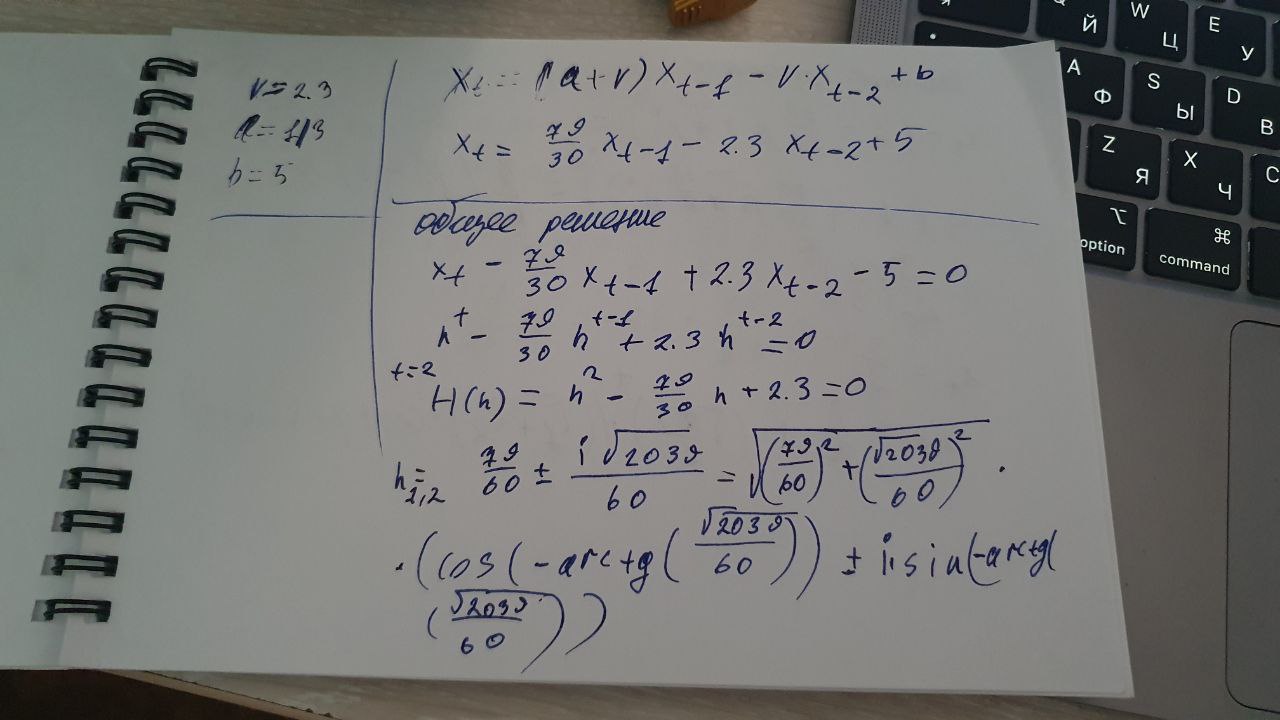 v = 2.3
a = 1/3
b = 5
x_t = (a+v) x_{t-1} - v · x_{t-2} + b
x_t = 79/30 x_{t-1} - 2.3 x_{t-2} + 5
общее решение
x_t - 79/30 x_{t-1} + 2.3 x_{t-2} - 5 = 0
h^t - 79/30 h^{t-1} + 2.3 h^{t-2} = 0
t=2
H(h) = h^2 - 79/30 h + 2.3 = 0
h_{1,2} = 79/60 ± i√2039/60 = √((79/60)^2 + (√2039/60)^2) ·
· (cos(-arctg(√2039/60)) ± i sin(-arctg(
(√2039/60)))
Й
W
Ц
E
У
A
Ф
S
Ы
D
В
Z
Я
X
Ч
C
option
⌥
⌘
command